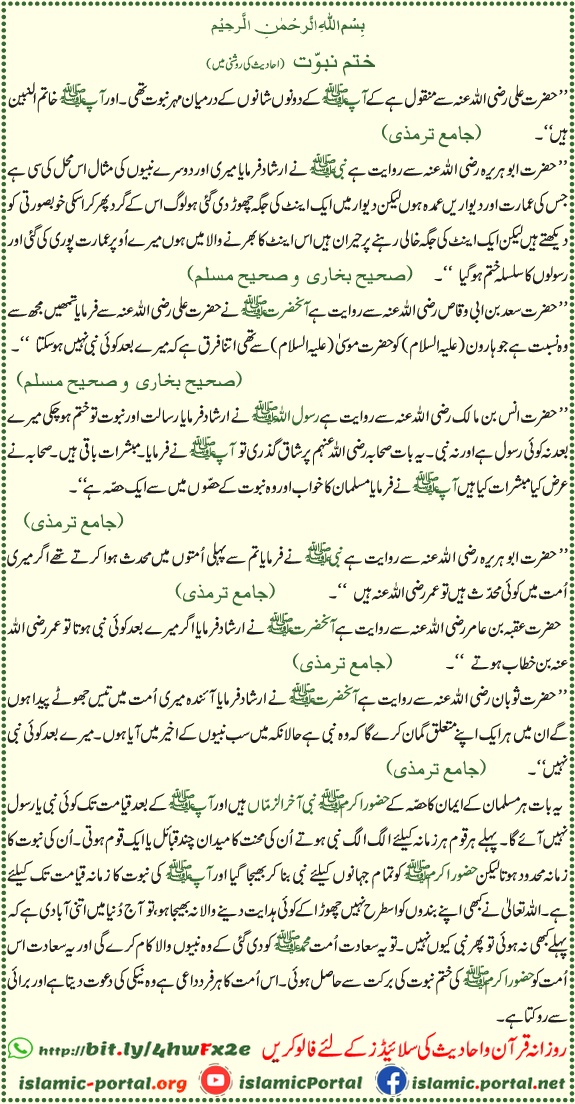 بِسْمِ اللّٰهِ الرَّحْمٰنِ الرَّحِيْمِ
ختم نبوّت (احادیث کی روشنی میں)
’’حضرت علی رضی اللہ عنہ سے منقول ہے کے آپ ﷺ کے دونوں شانوں کے درمیان مہر نبوت تھی۔ اور آپ ﷺ خاتم النبین
ہیں‘‘۔ (جامع ترمذی)
’’حضرت ابو ہریرہ رضی اللہ عنہ سے روایت ہے نبی ﷺ نے ارشاد فرمایا میری اور دوسرے نبیوں کی مثال اس محل کی سی ہے
جس کی عمارت اور دیواریں عمدہ ہوں لیکن دیوار میں ایک اینٹ کی جگہ چھوڑ دی گئی ہو لوگ اس کے گرد پھر کر اسکی خوبصورتی کو
دیکھتے ہیں لیکن ایک اینٹ کی جگہ خالی رہنے پر حیران ہیں اس اینٹ کا بھرنے والا میں ہوں میرے اُوپر عمارت پوری کی گئی اور
رسولوں کا سلسلہ ختم ہو گیا ‘‘۔ (صحیح بخاری و صحیح مسلم)
’’حضرت سعد بن ابی وقاص رضی اللہ عنہ سے روایت ہے آنحضرت ﷺ نے حضرت علی رضی اللہ عنہ سے فرمایا تمھیں مجھ سے
وہ نسبت ہے جو ہارون (علیہ السلام) کو حضرت موسیٰ (علیہ السلام) سے تھی اتنا فرق ہے کہ میرے بعد کوئی نبی نہیں ہو سکتا ‘‘۔
(صحیح بخاری و صحیح مسلم)
’’حضرت انس بن مالک رضی اللہ عنہ سے روایت ہے رسول اللہ ﷺ نے ارشاد فرمایا رسالت اور نبوت تو ختم ہو چکی میرے
بعد نہ کوئی رسول ہے اور نہ نبی۔ یہ بات صحابہ رضی اللہ عنہم پر شاق گذری تو آپ ﷺ نے فرمایا۔ مبشرات باقی ہیں۔ صحابہ نے
عرض کیا مبشرات کیا ہیں آپ ﷺ نے فرمایا مسلمان کا خواب اور وہ نبوت کے حصّوں میں سے ایک حصّہ ہے‘‘۔
(جامع ترمذی)
’’حضرت ابو ہریرہ رضی اللہ عنہ سے روایت ہے نبی ﷺ نے فرمایا تم سے پہلی اُمتوں میں محدث ہوا کرتے تھے اگر میری
اُمت میں کوئی محدّث ہیں تو عمر رضی اللہ عنہ ہیں ‘‘۔ (جامع ترمذی)
حضرت عقبہ بن عامر رضی اللہ عنہ سے روایت ہے آنحضرت ﷺ نے ارشاد فرمایا اگر میرے بعد کوئی نبی ہوتا تو عمر رضی اللہ
عنہ بن خطاب ہوتے ‘‘۔ (جامع ترمذی)
’’حضرت ثوبان رضی اللہ عنہ سے روایت ہے آنحضرت ﷺ نے ارشاد فرمایا آئندہ میری اُمت میں تیس جھوٹے پیدا ہوں
گے ان میں ہر ایک اپنے متعلق گمان کرے گا کہ وہ نبی ہے حالانکہ میں سب نبیوں کے اخیر میں آیا ہوں۔ میرے بعد کوئی نبی
نہیں‘‘۔ (جامع ترمذی)
یہ بات ہر مسلمان کے ایمان کا حصّہ کے حضور اکرم ﷺ نبی آخر الزمّاں ہیں اور آپ ﷺ کے بعد قیامت تک کوئی نبی یا رسول
نہیں آئے گا۔ پہلے ہر قوم ہر زمانہ کیلئے الگ الگ نبی ہوتے اُن کی محنت کا میدان چند قبائل یا ایک قوم ہوتی۔ اُن کی نبوت کا
زمانہ محدود ہوتا لیکن حضور اکرم ﷺ کو تمام جہانوں کیلئے نبی بنا کر بھیجا گیا اور آپ ﷺ کی نبوت کا زمانہ قیامت تک کیلئے
ہے۔ اللہ تعالیٰ نے کبھی اپنے بندوں کو اسطرح نہیں چھوڑا کے کوئی ہدایت دینے والا نہ بھیجا ہو، تو آج دُنیا میں اتنی آبادی ہے کہ
پہلے کبھی نہ ہوئی تو پھر نبی کیوں نہیں۔ تو یہ سعادت اُمت محمد ﷺ کو دی گئی کے وہ نبیوں والا کام کرے گی اور یہ سعادت اس
اُمت کو حضور اکرم ﷺ کی ختم نبوت کی برکت سے حاصل ہوئی۔ اس اُمت کا ہر فرد داعی ہے وہ نیکی کی دعوت دیتا ہے اور برائی
سے روکتا ہے۔
روزانہ قرآن و احادیث کی سلائیڈز کے لئے فالو کریں http://bit.ly/4hwFx2e
islamic-portal.org islamicPortal islamic.portal.net